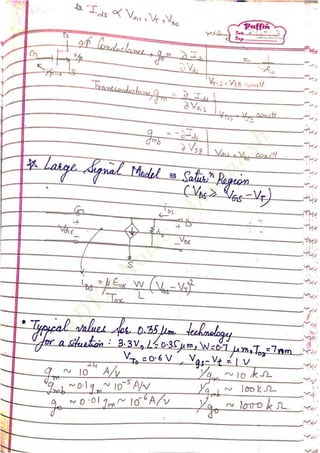 * I_ds ∝ V_GS, V_T, V_DS
Puffin
Date
Page
D
G
S
O/P Conductance, g_o = ∂I_ds / ∂V_ds | V_GS, V_SB const = 1/r_o
Transconductance, g_m = ∂I_ds / ∂V_GS | V_DS const
g_mb = -∂I_ds / ∂V_SB | V_GS, V_DS const
* Large Signal Model ≡ Satur^n Region
(V_DS ≥ V_GS - V_T)
G
i_DS
D
V_GS
V_DS
S
i_DS = μ E_ox / T_ox W / L (V_GS - V_T)^2
• Typical values for 0.35 μm technology
for a situation : 3.3V, L=0.35 μm, W=0.7 μm, T_ox=7nm
V_To = 0.6V, V_gs - V_t = 1V
g_m ~ 10^-4 A/V 1/g_m ~ 10kΩ
g_mb ~ 0.1g_m ~ 10^-5 A/V 1/g_mb ~ 100kΩ
g_o ~ 0.01g_m ~ 10^-6 A/V 1/g_o ~ 1000kΩ